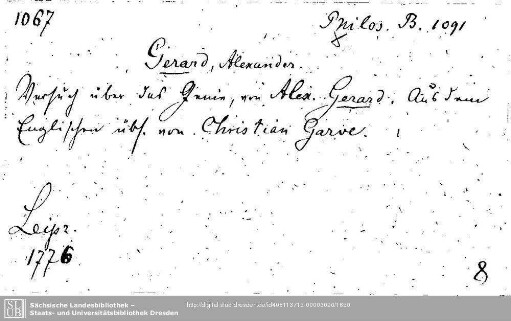 1067
Philos. B. 1091
Gerard, Alexander.
Versuch über das Genie, von Alex. Gerard. Aus dem
Englischen übs. von Christian Garve.
Leipz.
1776
8
SLUB
Sächsische Landesbibliothek –
Staats- und Universitätsbibliothek Dresden